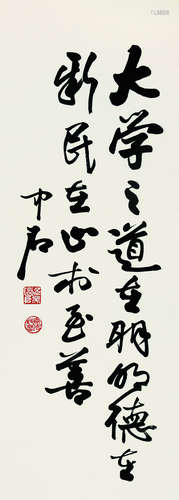 大学之道在明明德在
新民在止於至善
中石